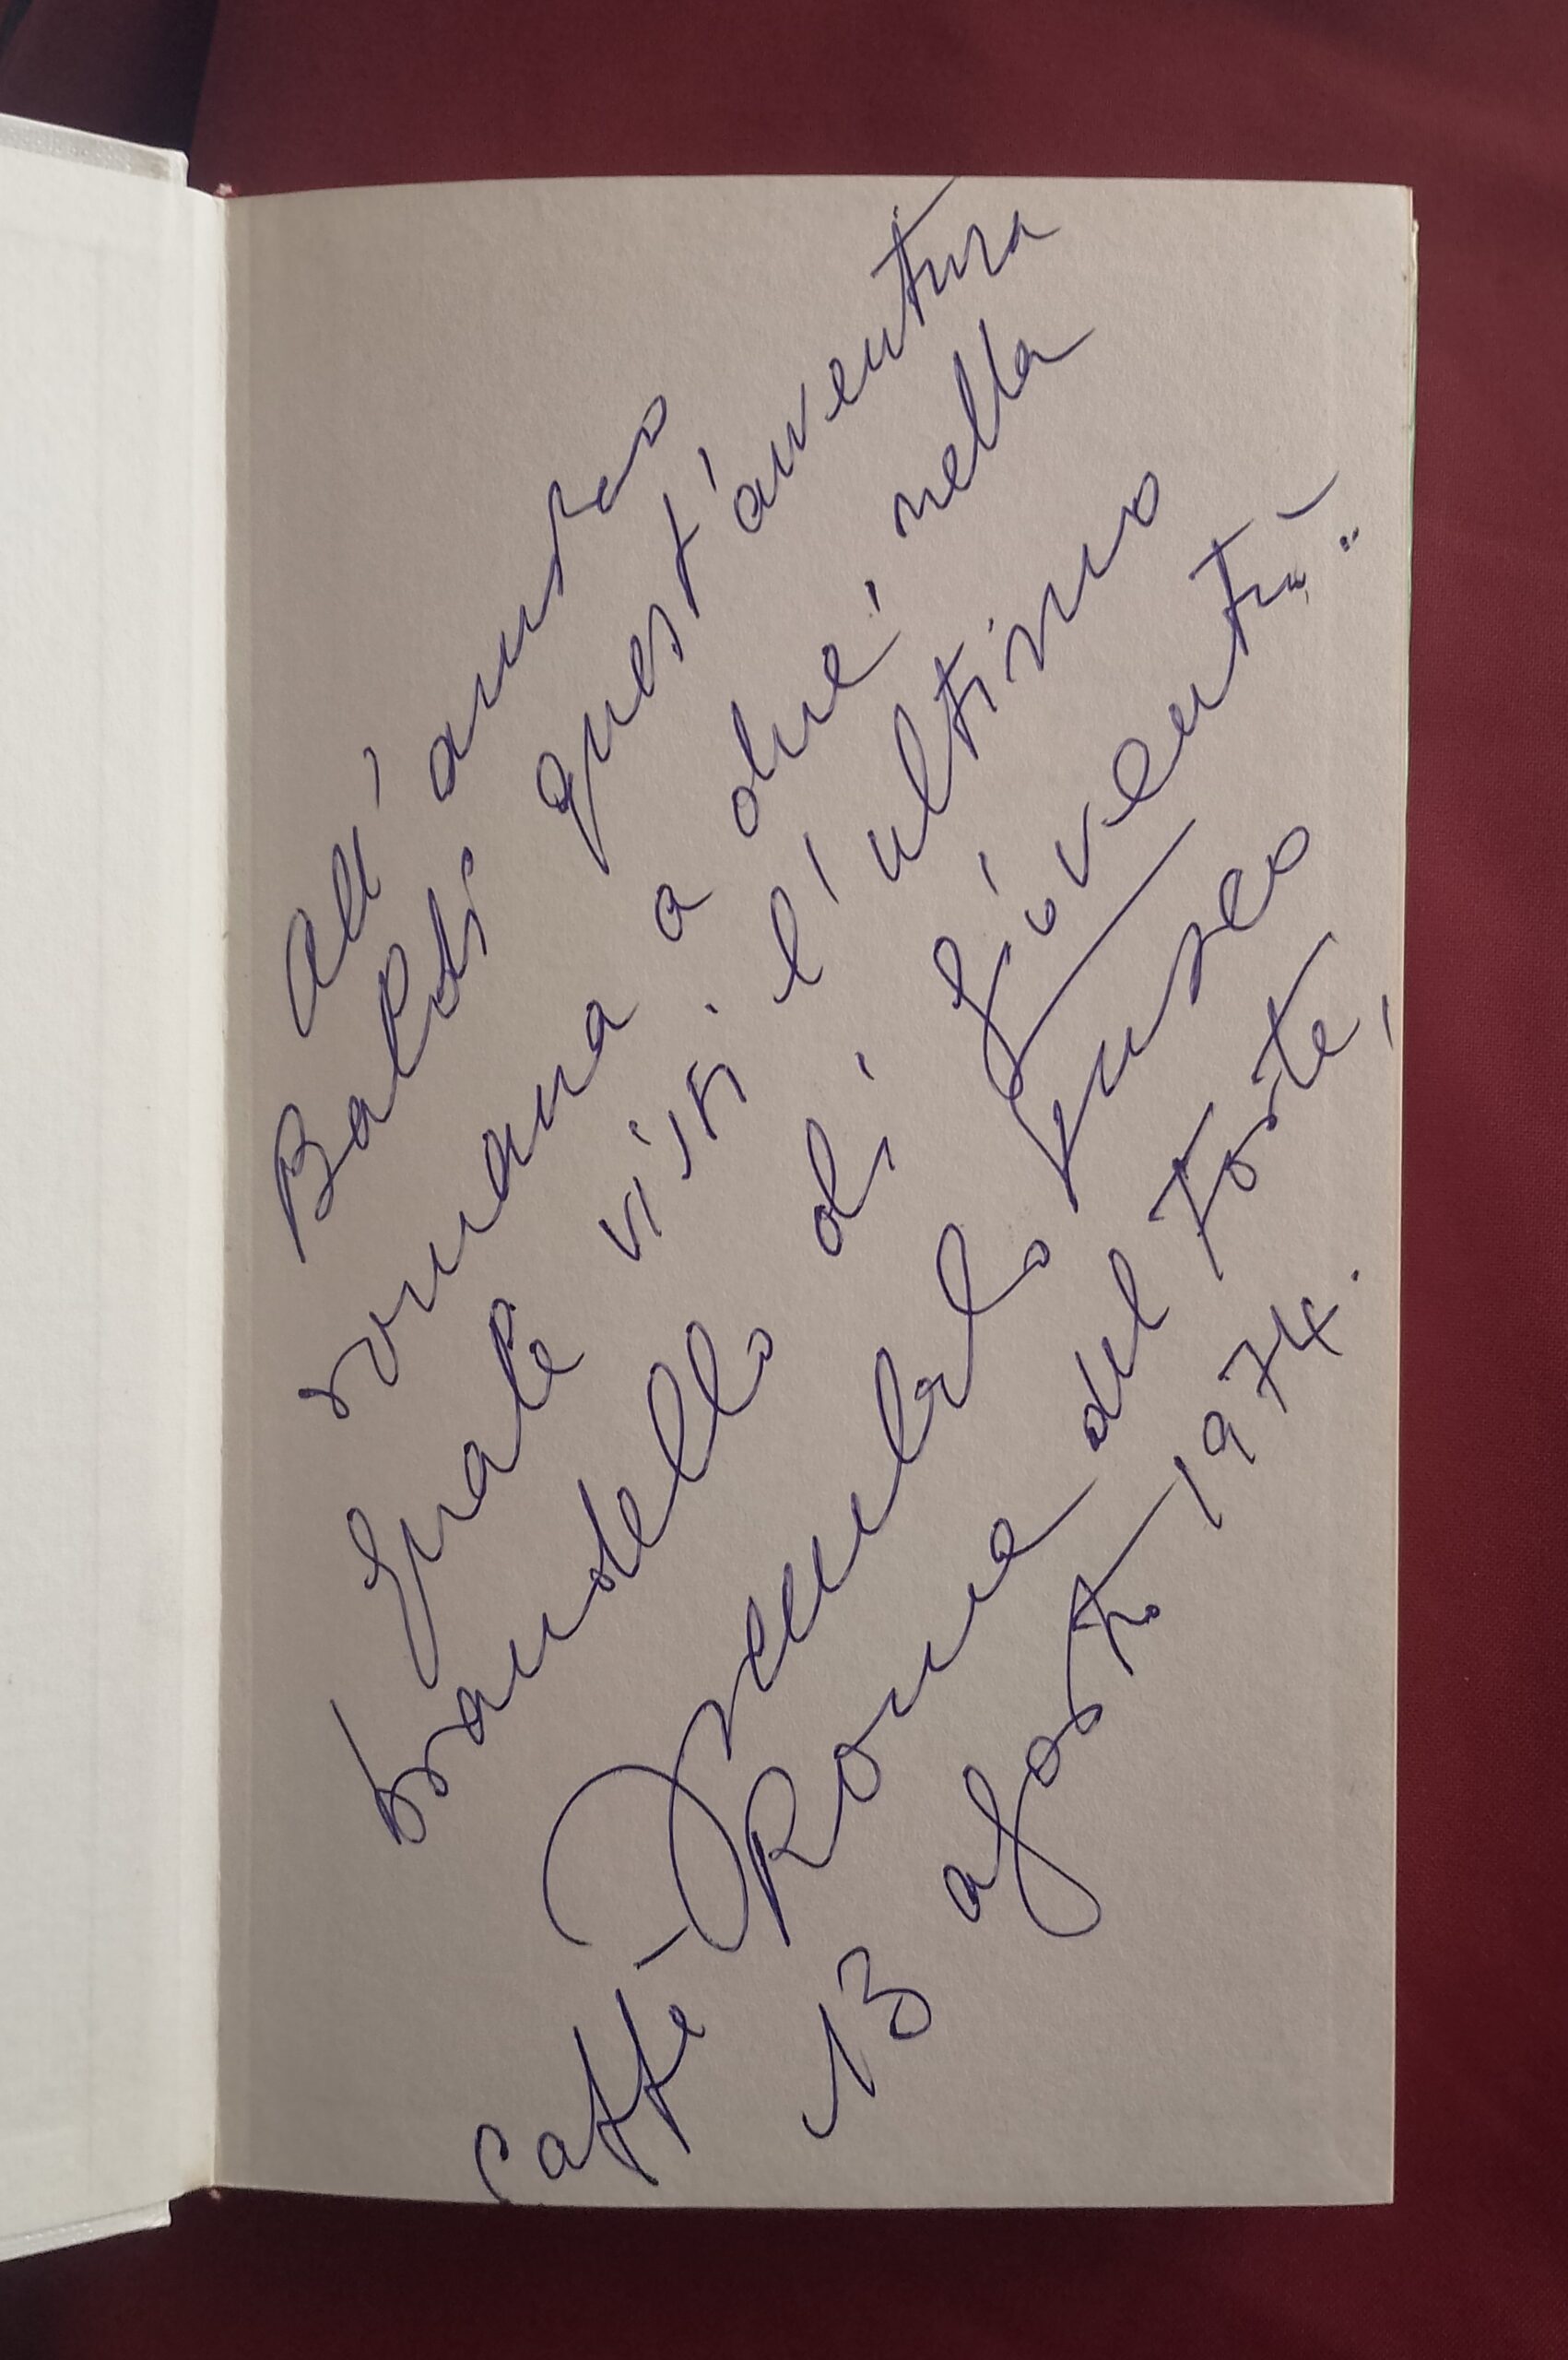 All'amico
Baldi quest'avventura
romana a due, nella
quale vissi l'ultimo
brandello di gioventù:
Giancarlo Fusco
Caffè Roma del Forte,
13 agosto 1974.